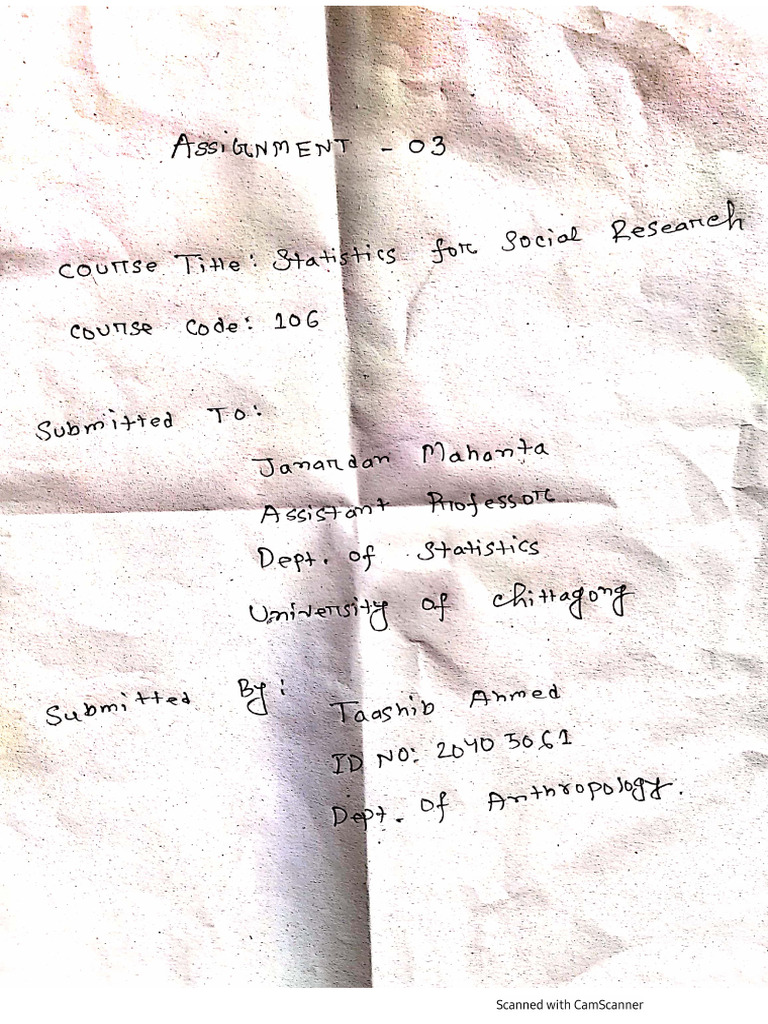 ASSIGNMENT - 03
Course Title: Statistics for Social Research
Course Code: 106
Submitted To:
Janardan Mahanta
Assistant Professor
Dept. of Statistics
University of Chittagong
Submitted By:
Taashib Ahmed
ID NO: 20405061
Dept. of Anthropology.
Scanned with CamScanner